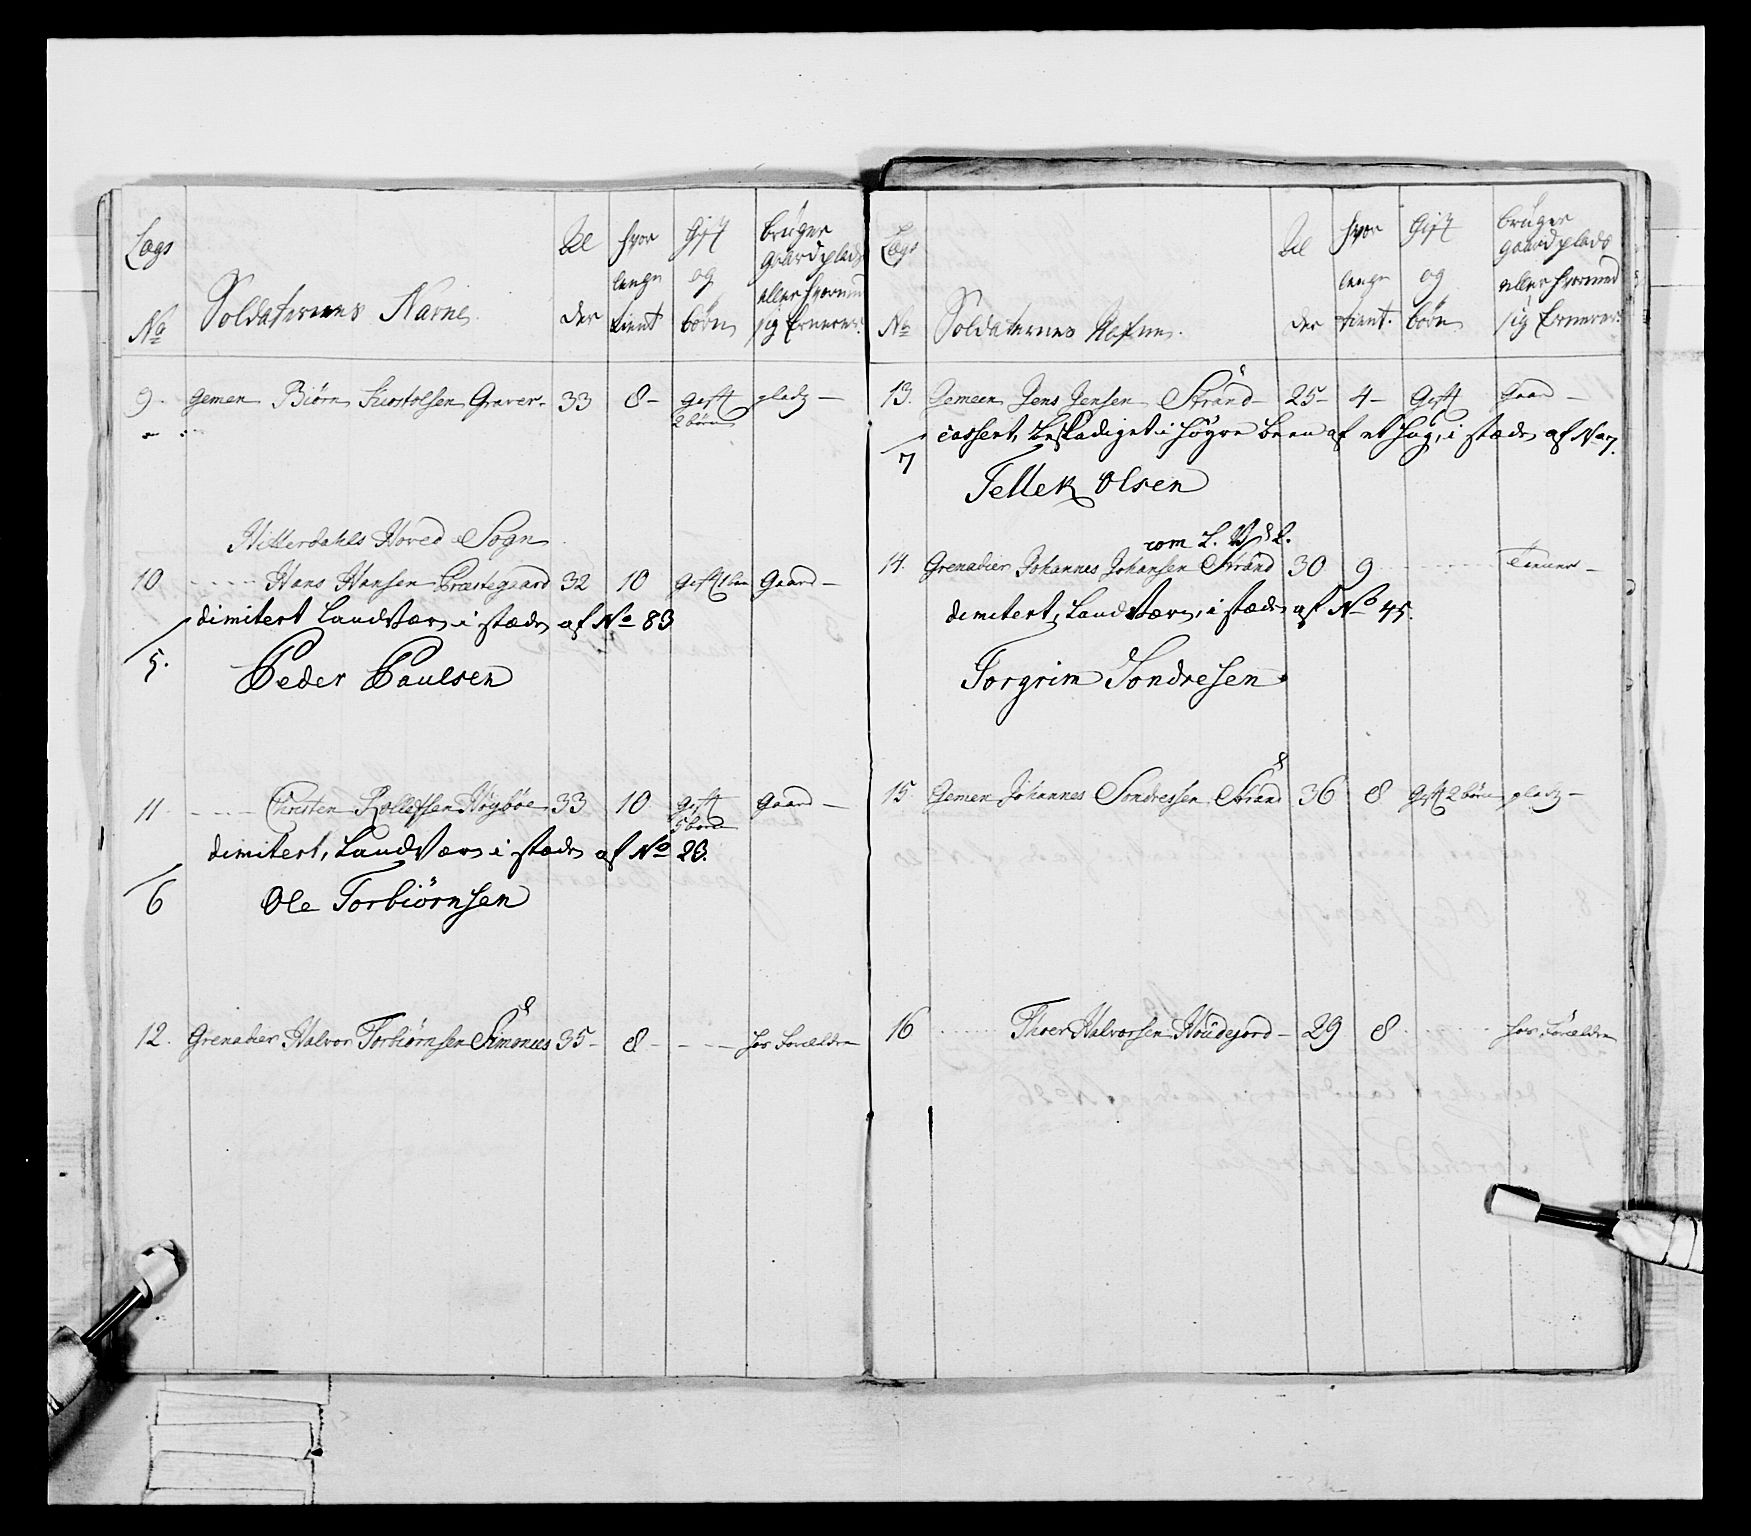 Lægs
No
Soldaternes Nafne
Al
der
hvor
længe
tient
Gift
og
børn
bruger
gaard plads
eller hvormed
sig Ernerer.
9. Gemen Biørn Kiostolsen Graver- 33 8- Gift pladz-
2 børn
Hitterdahls Hoved Sogn
10 Hans Hansen Præstegaard 32 10 Gift 1 barn Gaard-
dimitert Landværn i stædn af No 83
5. Peder Paulsen
11 Christen Rollefsen Høybøe 33 10 Gift Gaard-
5 børn
dimitert, Landværn i stædn af No 23.
6 Ole Torbiørnsen
12. Grenadier Halvor Torbiørnsen Simones 35- 8- hos Forældre
Lægs
No
Soldaternes Nafne.
Al
der
hvor
længe
tient.
Gift
og
børn
bruger
gaard plads
eller hvormed
sig Ernerer.
13. Gemeen Jens Jensen Strand- 25- 4- Gift Gaard-
cassert, beskadiget i høyre been af et hug, i stædn af No 7.
7 Tellek Olsen
14. Grenadier Johannes Johansen Strand 30 9 Tiener-
dimitert, Landværn, i stædn af No 45.
Torgrim Sondresen
15 Gemen Johannes Sondressen Strand 36 8 Gift 2 børn pladz-
16 Thoer Halvorsen Houdejord- 29 8 hos Forældre